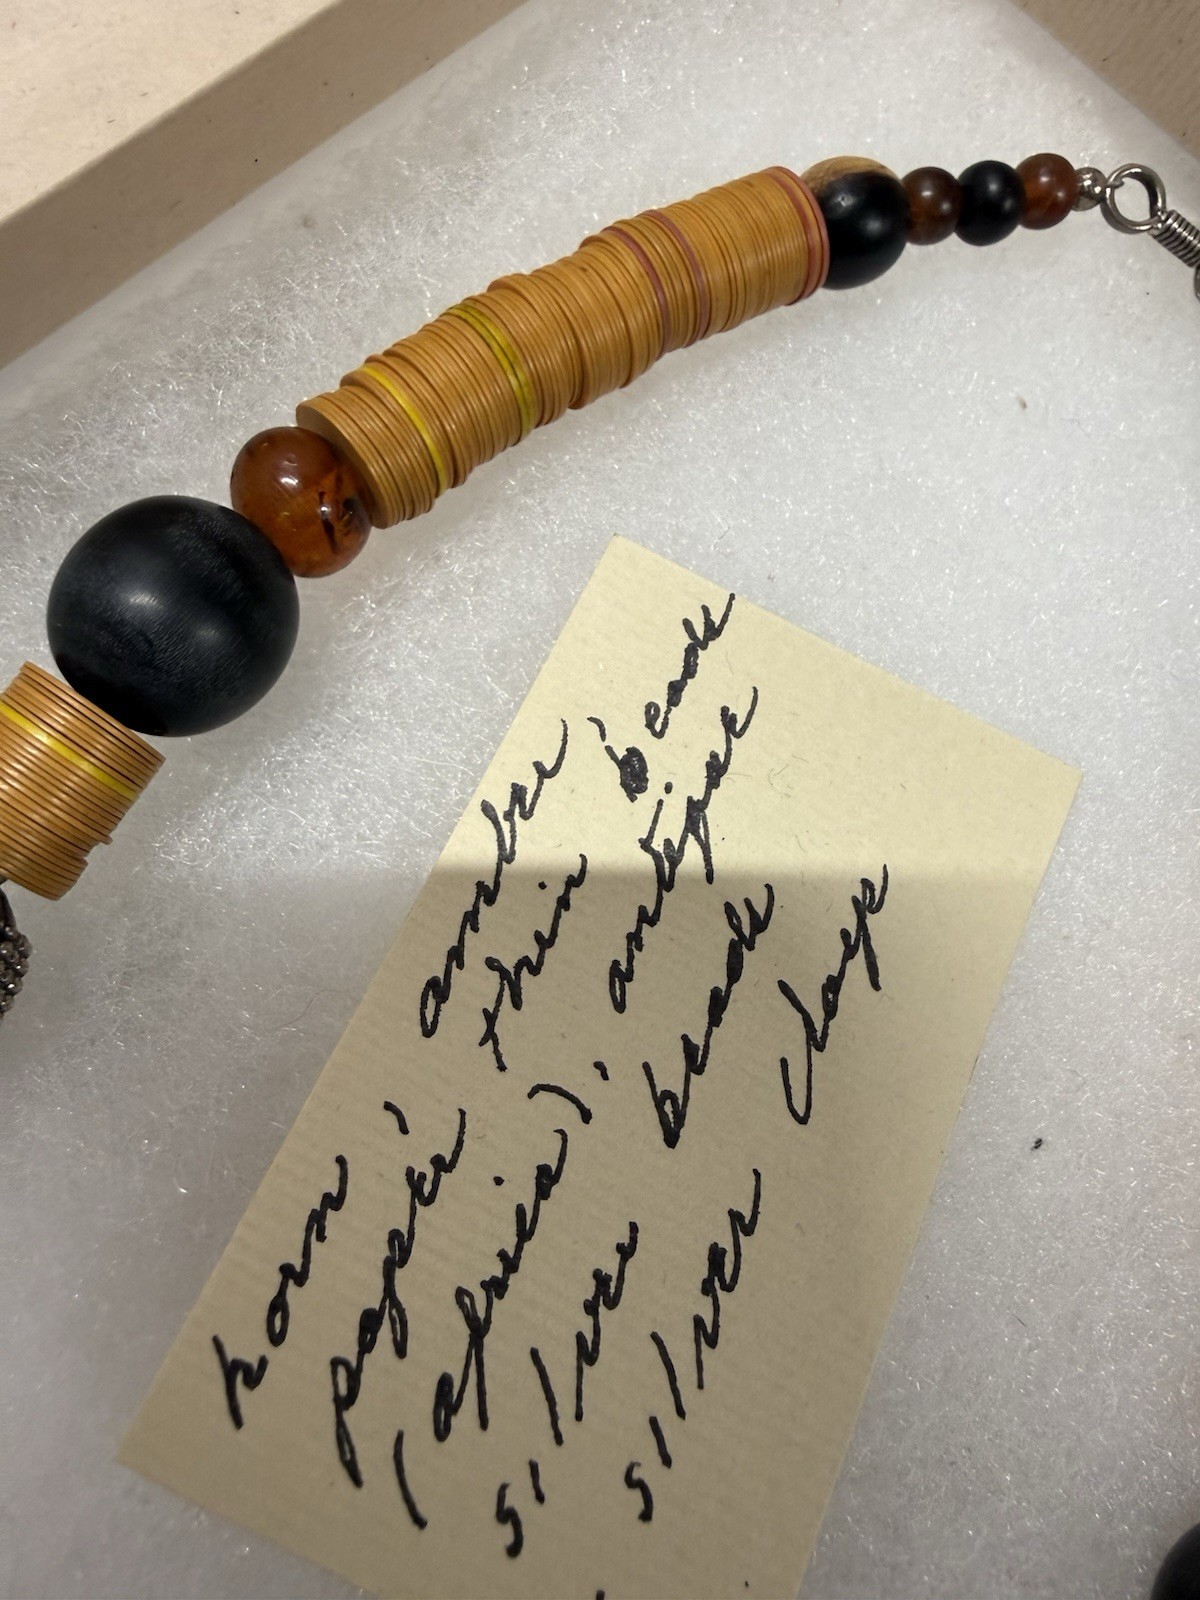 horn, amber,
paper thin beads
(africa), antique
silver beads
silver clasp